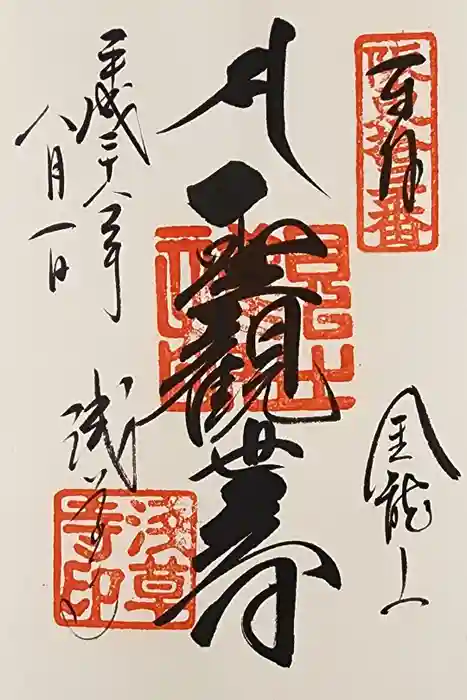 奉拝
坂東拾三番
金龍山
聖觀世音
平成二十八年
八月一日
浅草寺
浅草寺印